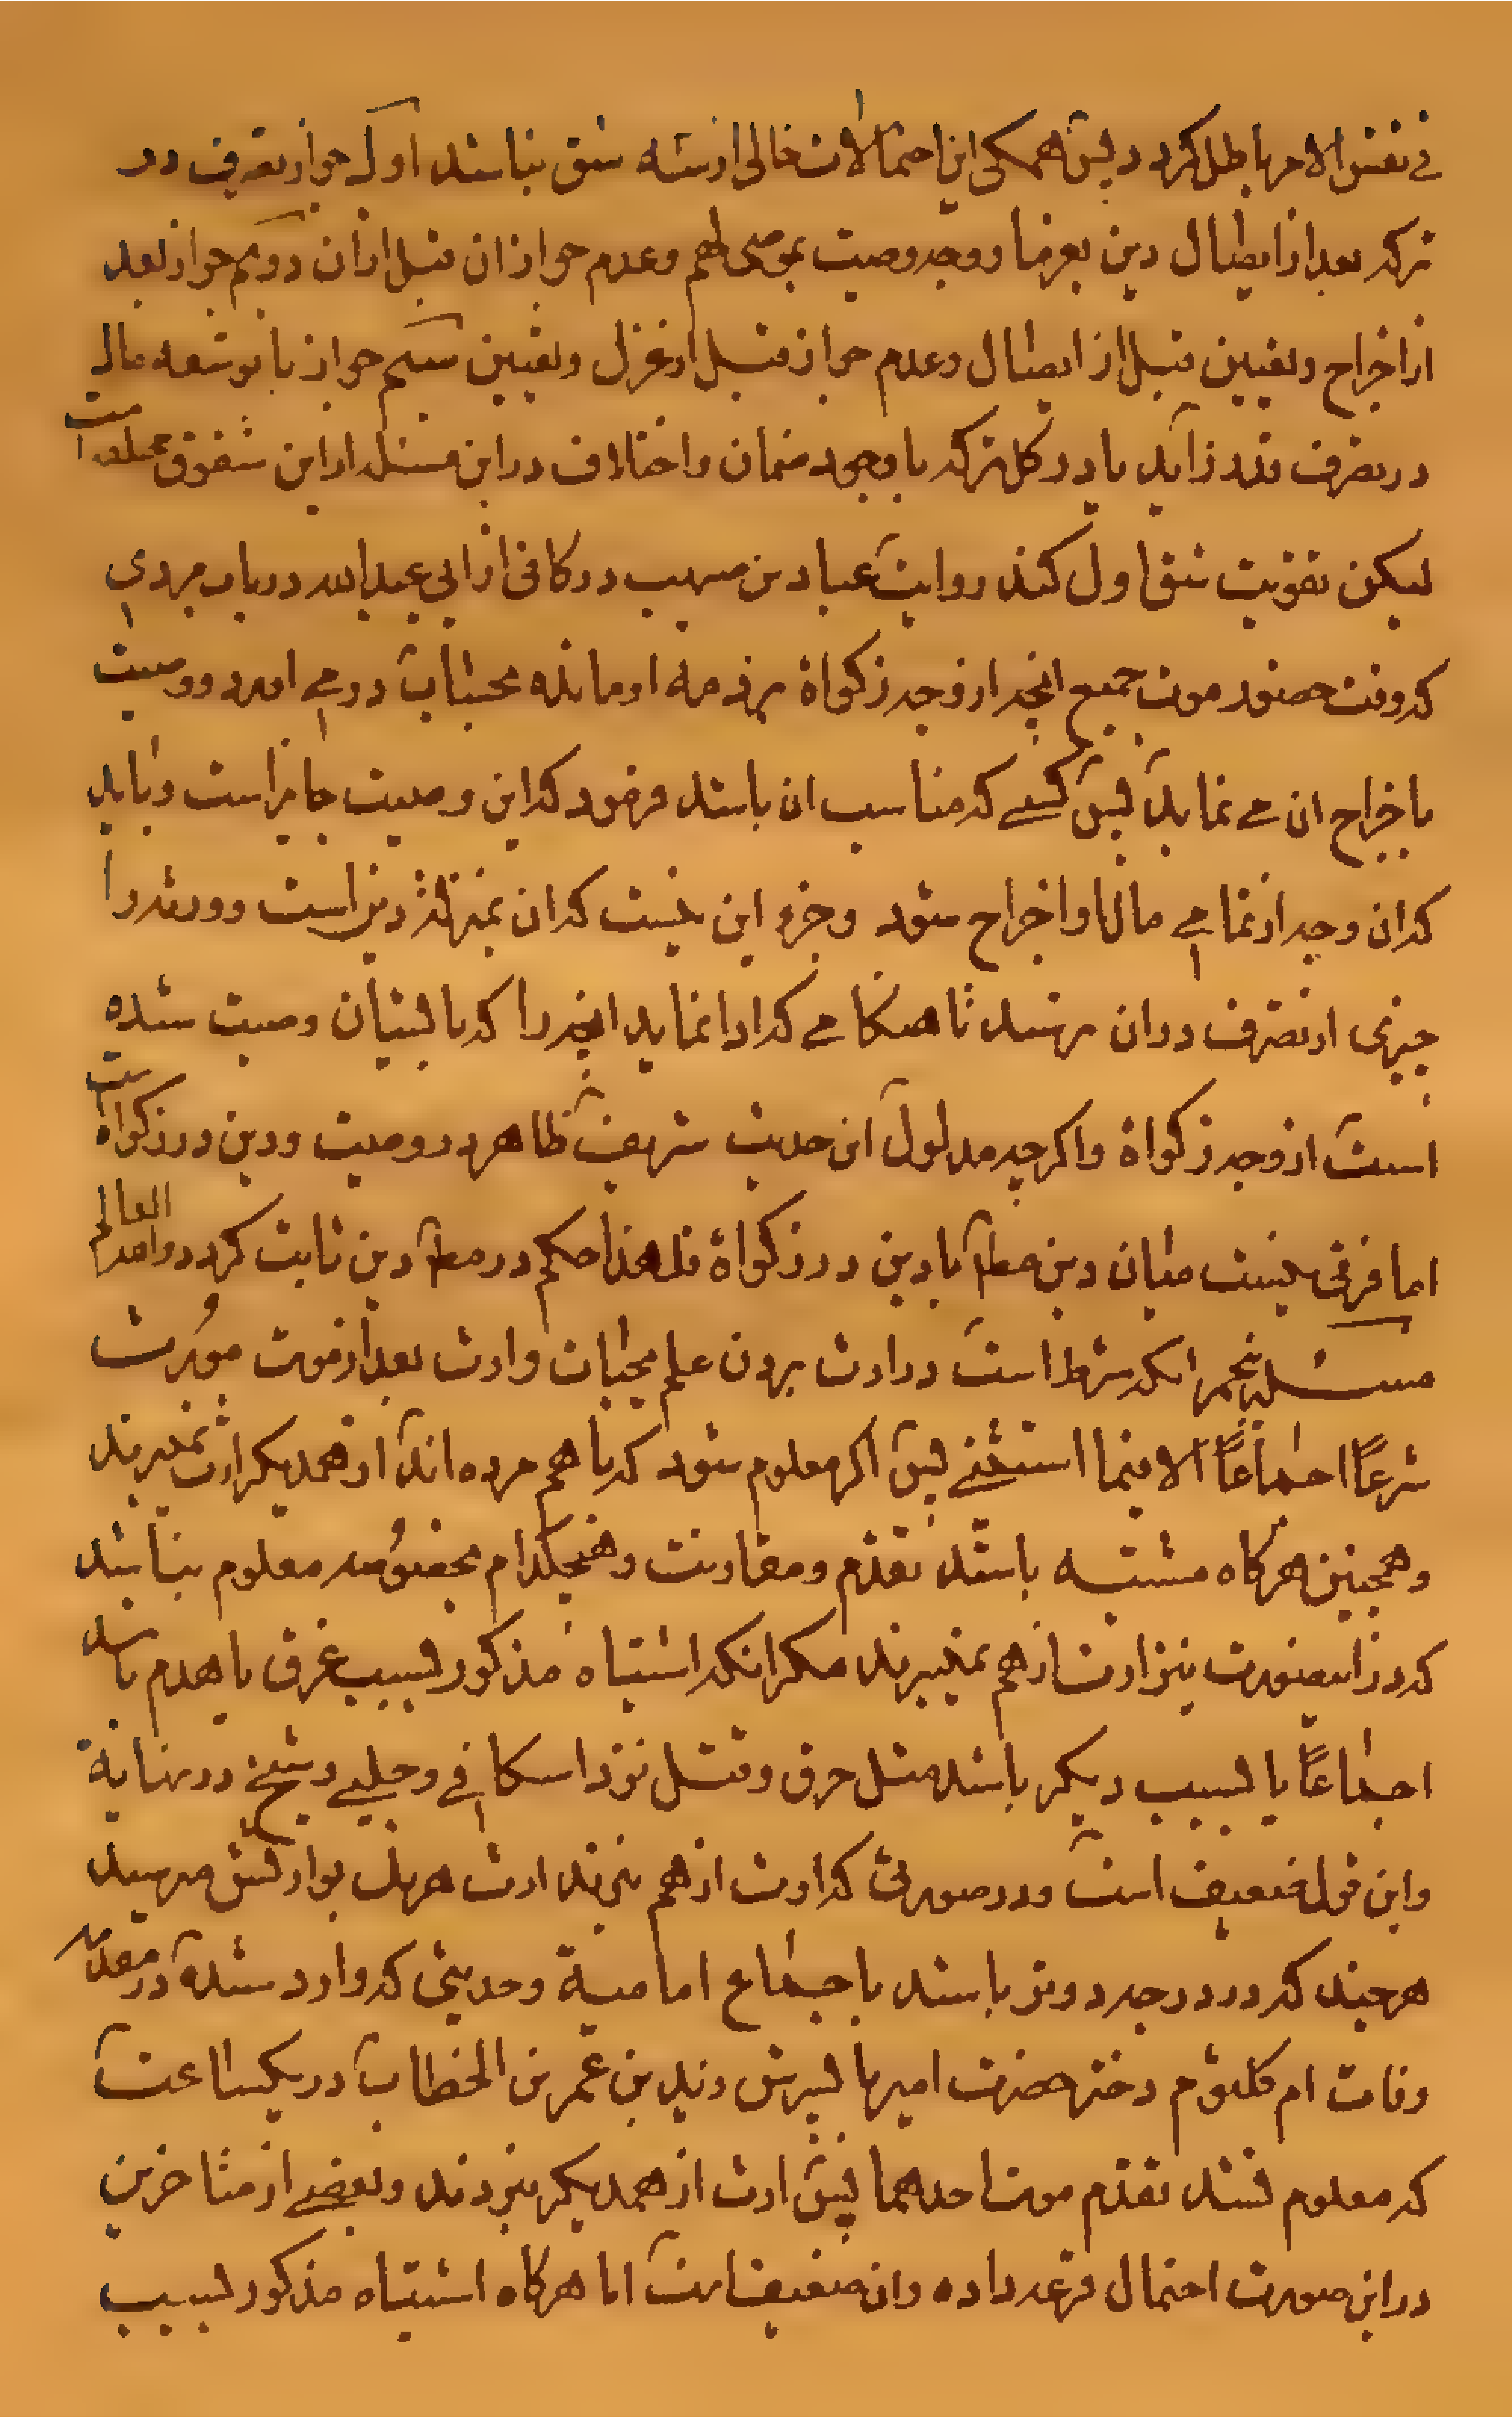 في نفس الامر باطل كردد پس همكى اين احتمالات خالى از سه شق نباشد اول جواز تصرف در
تركه بعد از ايصال دين بغرما ووجه وصيت بموصى لهم وعدم جواز ان قبل از ان دويم جواز بعد
از اخراج وتعيين قبل از ايصال وعدم جواز قبل از عزل وتعيين سيم جواز با توسعه مال
در تصرف قدر زايد يا در كل تركه با وجود ضمان واختلاف در اين مسئله از اين شقوق محتملست
ليكن تقويت شق اول كند روايت عباد بن صهيب در كافى از ابي عبدالله در باب مردى
كه وقت حضور موت جميع انچه از وجه زكواة بر ذمه او مانده بحساب در مى اورد ووصيت
باخراج ان مے نمايد پس كسے كه مناسب ان باشد فرمود كه اين وصيت جايز است وبايد
كه ان وجه از تمامے مال او اخراج شود وجزء اين نيست كه ان بمنزلهٔ دين است وورثه را
چيزى از تصرف در ان نرسد تا هنكامے كه ادا نمايد انچه را كه بايشان وصيت شده
است از وجه زكواة واكرچه مدلول اين حديث شريف ظاهر در وصيت ودين در زكواة است
اما فرقى نيست ميان دين مطلقا با دين در زكواة فلهذا حكم در مطلق دين ثابت كردد والله العالم
مسئله پنجم انكه شرط است در ارث بردن علم بحيات وارث بعد از موت مورث
شرعاً اجماعاً الا فيما استثنے پس اكر معلوم شود كه با هم مرده اند از همديكر ارث نميبرند
وهمچنين هركاه مشتبه باشد تقدم ومقارنت وهيچكدام بخصوصه معلوم نباشد
كه در اينصورت نيز ارث از هم نميبرند مكر انكه اشتباه مذكور بسبب غرق يا هدم باشد
اجماعاً يا بسبب ديكر باشد مثل حرق وقتل نزد اسكافے وحلبے وشيخ در نهاية
واين قول ضعيف است ودر صورتى كه ارث از هم نبرند ارث هريك بوارثش ميرسد
هرچند كه در درجه دوئم باشد باجماع امامية وحديثى كه وارد شده در مقدمه
وفات ام كلثوم دختر حضرت امير با پسرش زيد بن عمر بن الخطاب در يكساعت
كه معلوم نشد تقدم موت احدهما پس ارث از همديكر نبردند وبعضے از متاخرين
در اين صورت احتمال قرعه داده وان ضعيف است اما هركاه اشتباه مذكور بسبب